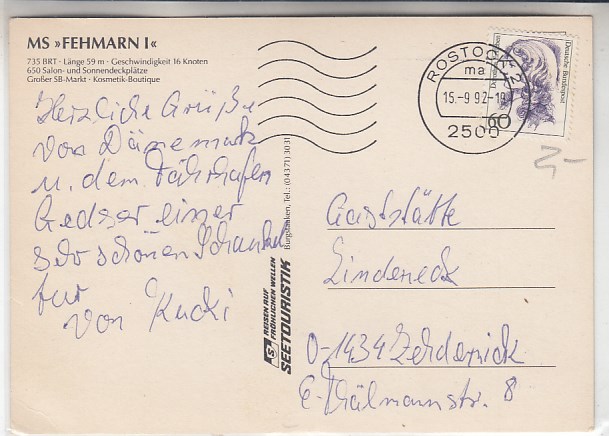 MS »FEHMARN I«
735 BRT · Länge 59 m · Geschwindigkeit 16 Knoten
650 Salon- und Sonnendeckplätze
Großer SB-Markt · Kosmetik-Boutique
Herzliche Grüße
von Dänemark
u. dem Fährhafen
Gedser einer
sehr schönen
fur
von Kucki
Burgstaaken, Tel.: (04371) 30 31
REISEN AUF
FRÖHLICHEN WELLEN
SEETOURISTIK
ROSTOCK 2
ma
15.-9.92-19
2500
Deutsche Bundespost
60
2,-
Gaststätte
Lindeneck
O-1434 Zehdenick
E-Thälmannstr. 8